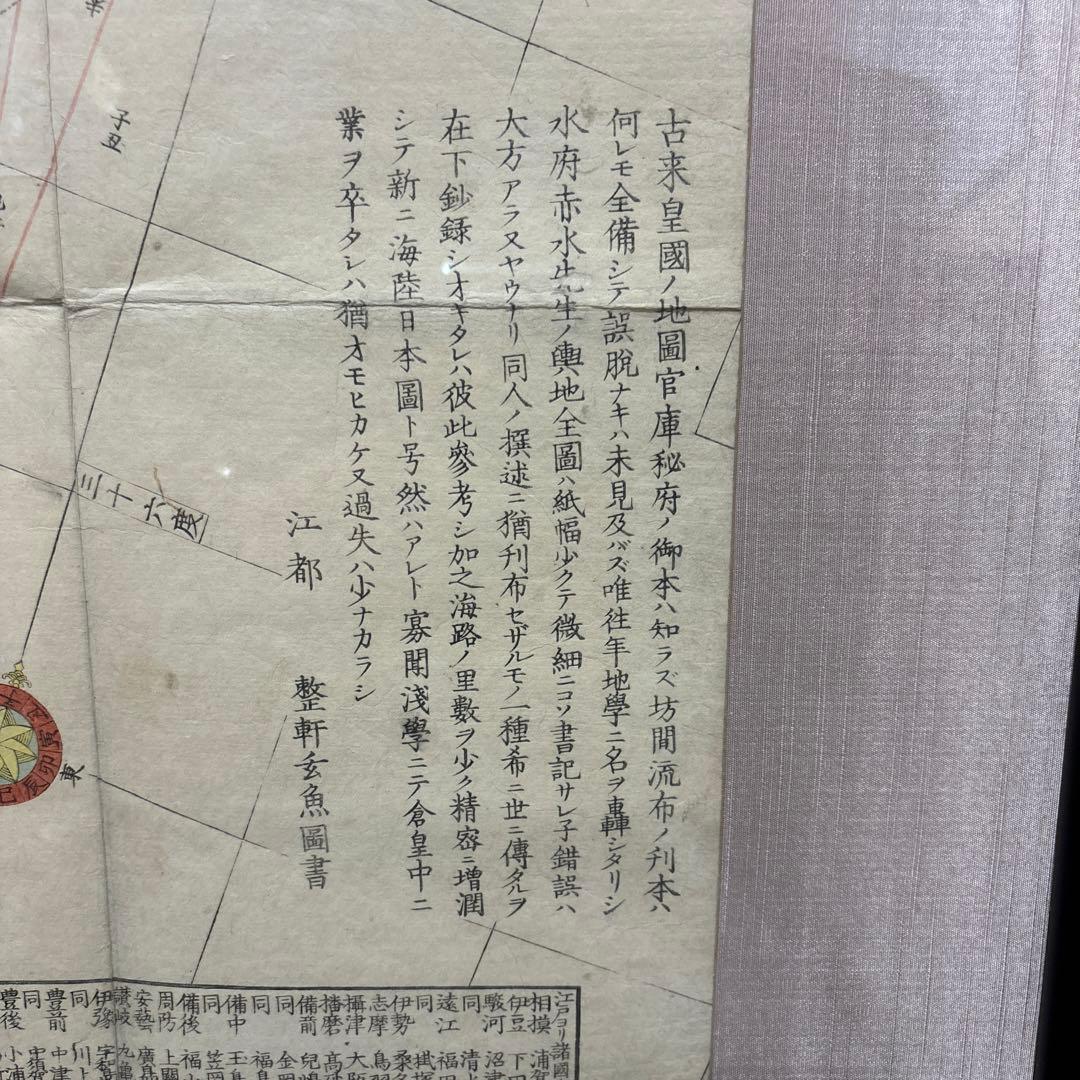 古来皇國ノ地圖官庫秘府ノ御本ハ知ラズ坊間流布ノ刋本ハ
何レモ全備シテ誤脱ナキハ未見及バズ唯往年地學ニ名ヲ轟シタリシ
水府赤水先生ノ輿地全圖ハ紙幅少クテ微細ニコソ書記サレ子錯誤ハ
大方アラヌヤウナリ同人ノ撰述ニ猶刋布セザルモノ一種希ニ世ニ傳タルヲ
在下鈔録シオキタレハ彼此參考シ加之海路ノ里數ヲ少ク精密ニ増潤
シテ新ニ海陸日本圖ト号然ハアレト寡聞淺學ニテ倉皇中ニ
業ヲ卒タレハ猶オモヒカケヌ過失ハ少ナカラシ
江都 整軒玄魚圖書
子丑
三十六度
東
寅
卯
辰
巳
江戸ヨリ諸國
相摸 浦賀
伊豆 下田
駿河 沼津
同 清水
遠江 福田
同 掛塚
伊勢 桑名
志摩 鳥羽
攝津 大阪
播磨 高砂
備前 兒嶋
同 金岡
同 福島
備中 玉島
同 笠岡
備後 福山
周防 上関
安藝 廣島
讃岐 九亀
伊豫 宇和
同 川上
豊前 中津
同 宇須
豊後 小浦